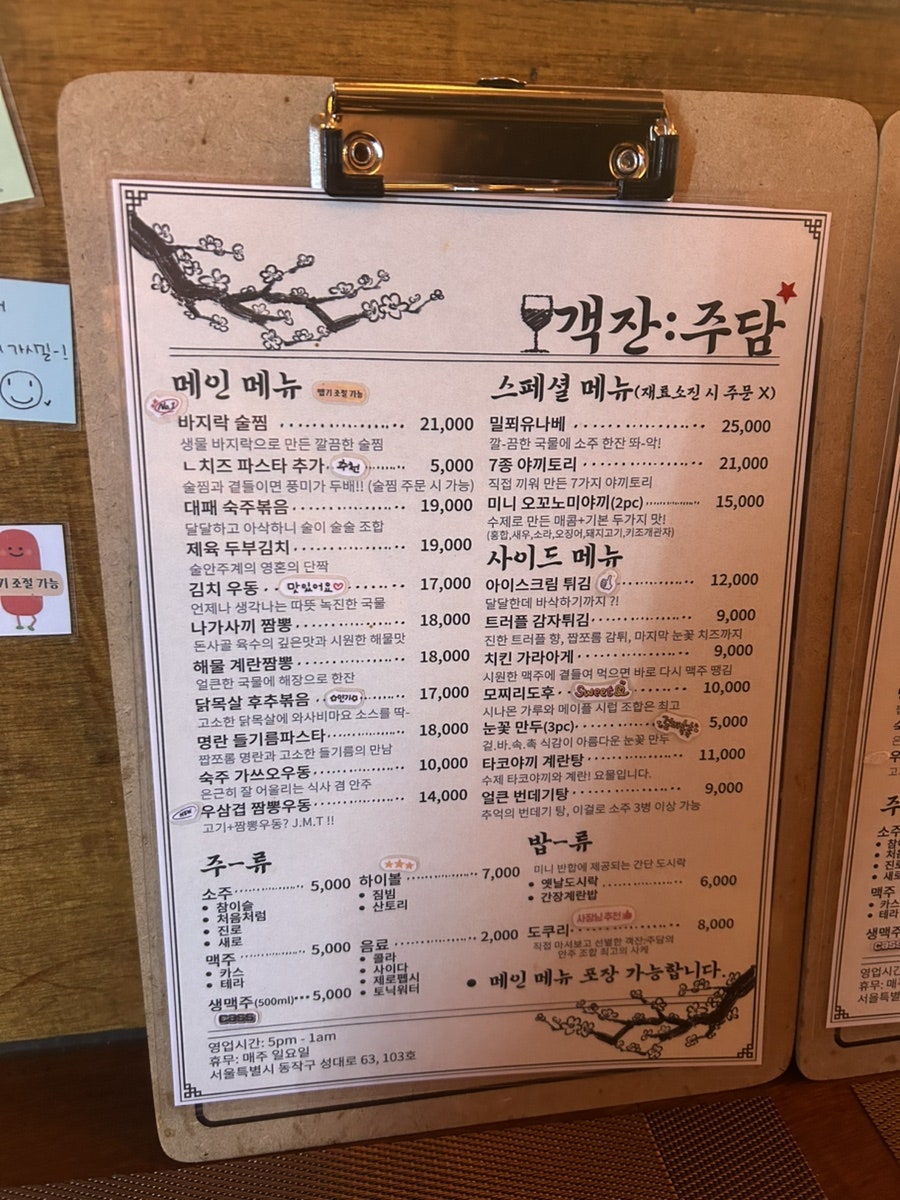 객잔:주담
메인 메뉴 맵기 조절 가능
No.1
바지락 술찜 21,000
생물 바지락으로 만든 깔끔한 술찜
ㄴ치즈 파스타 추가 추천 5,000
술찜과 곁들이면 풍미가 두배!! (술찜 주문 시 가능)
대패 숙주볶음 19,000
달달하고 아삭하니 술이 술술 조합
제육 두부김치 19,000
술안주계의 영혼의 단짝
김치 우동 맛있어요♡ 17,000
언제나 생각나는 따뜻 녹진한 국물
나가사끼 짬뽕 18,000
돈사골 육수의 깊은맛과 시원한 해물맛
해물 계란짬뽕 18,000
얼큰한 국물에 해장으로 한잔
닭목살 후추볶음 17,000
고소한 닭목살에 와사비마요 소스를 딱-
명란 들기름파스타 18,000
짭쪼롬 명란과 고소한 들기름의 만남
숙주 가쓰오우동 10,000
은근히 잘 어울리는 식사 겸 안주
NEW
우삼겹 짬뽕우동 14,000
고기+짬뽕우동? J.M.T !!
스페셜 메뉴(재료소진 시 주문 X)
밀푀유나베 25,000
깔-끔한 국물에 소주 한잔 똬-악!
7종 야끼토리 21,000
직접 끼워 만든 7가지 야끼토리
미니 오꼬노미야끼(2pc) 15,000
수제로 만든 매콤+기본 두가지 맛!
(홍합,새우,소라,오징어,돼지고기,키조개관자)
사이드 메뉴
아이스크림 튀김 12,000
달달한데 바삭하기까지 ?!
트러플 감자튀김 9,000
진한 트러플 향, 짭쪼롬 감튀, 마지막 눈꽃 치즈까지
치킨 가라아게 9,000
시원한 맥주에 곁들여 먹으면 바로 다시 맥주 땡김
모찌리도후 Sweet 10,000
시나몬 가루와 메이플 시럽 조합은 최고
눈꽃 만두(3pc) 5,000
겉.바.속.촉 식감이 아름다운 눈꽃 만두
타코야끼 계란탕 11,000
수제 타코야끼와 계란! 요물입니다.
얼큰 번데기탕 9,000
추억의 번데기 탕, 이걸로 소주 3병 이상 가능
주-류
소주 5,000
• 참이슬
• 처음처럼
• 진로
• 새로
맥주 5,000
• 카스
• 테라
생맥주(500ml) 5,000
CASS
하이볼 7,000
• 짐빔
• 산토리
음료 2,000
• 콜라
• 사이다
• 제로펩시
• 토닉워터
밥-류
미니 반합에 제공되는 간단 도시락
• 옛날도시락 6,000
• 간장계란밥
사장님 추천
도쿠리 8,000
직접 마셔보고 선별한 객잔:주담의
안주 조합 최고의 사케
• 메인 메뉴 포장 가능합니다.
영업시간: 5pm - 1am
휴무: 매주 일요일
서울특별시 동작구 성대로 63, 103호
가시길-!
기 조절 가능
주
소주
• 참
• 처
• 진
• 새
맥주
• 카스
• 테라
생맥주
영업시간
휴무: 매주
서울특별시